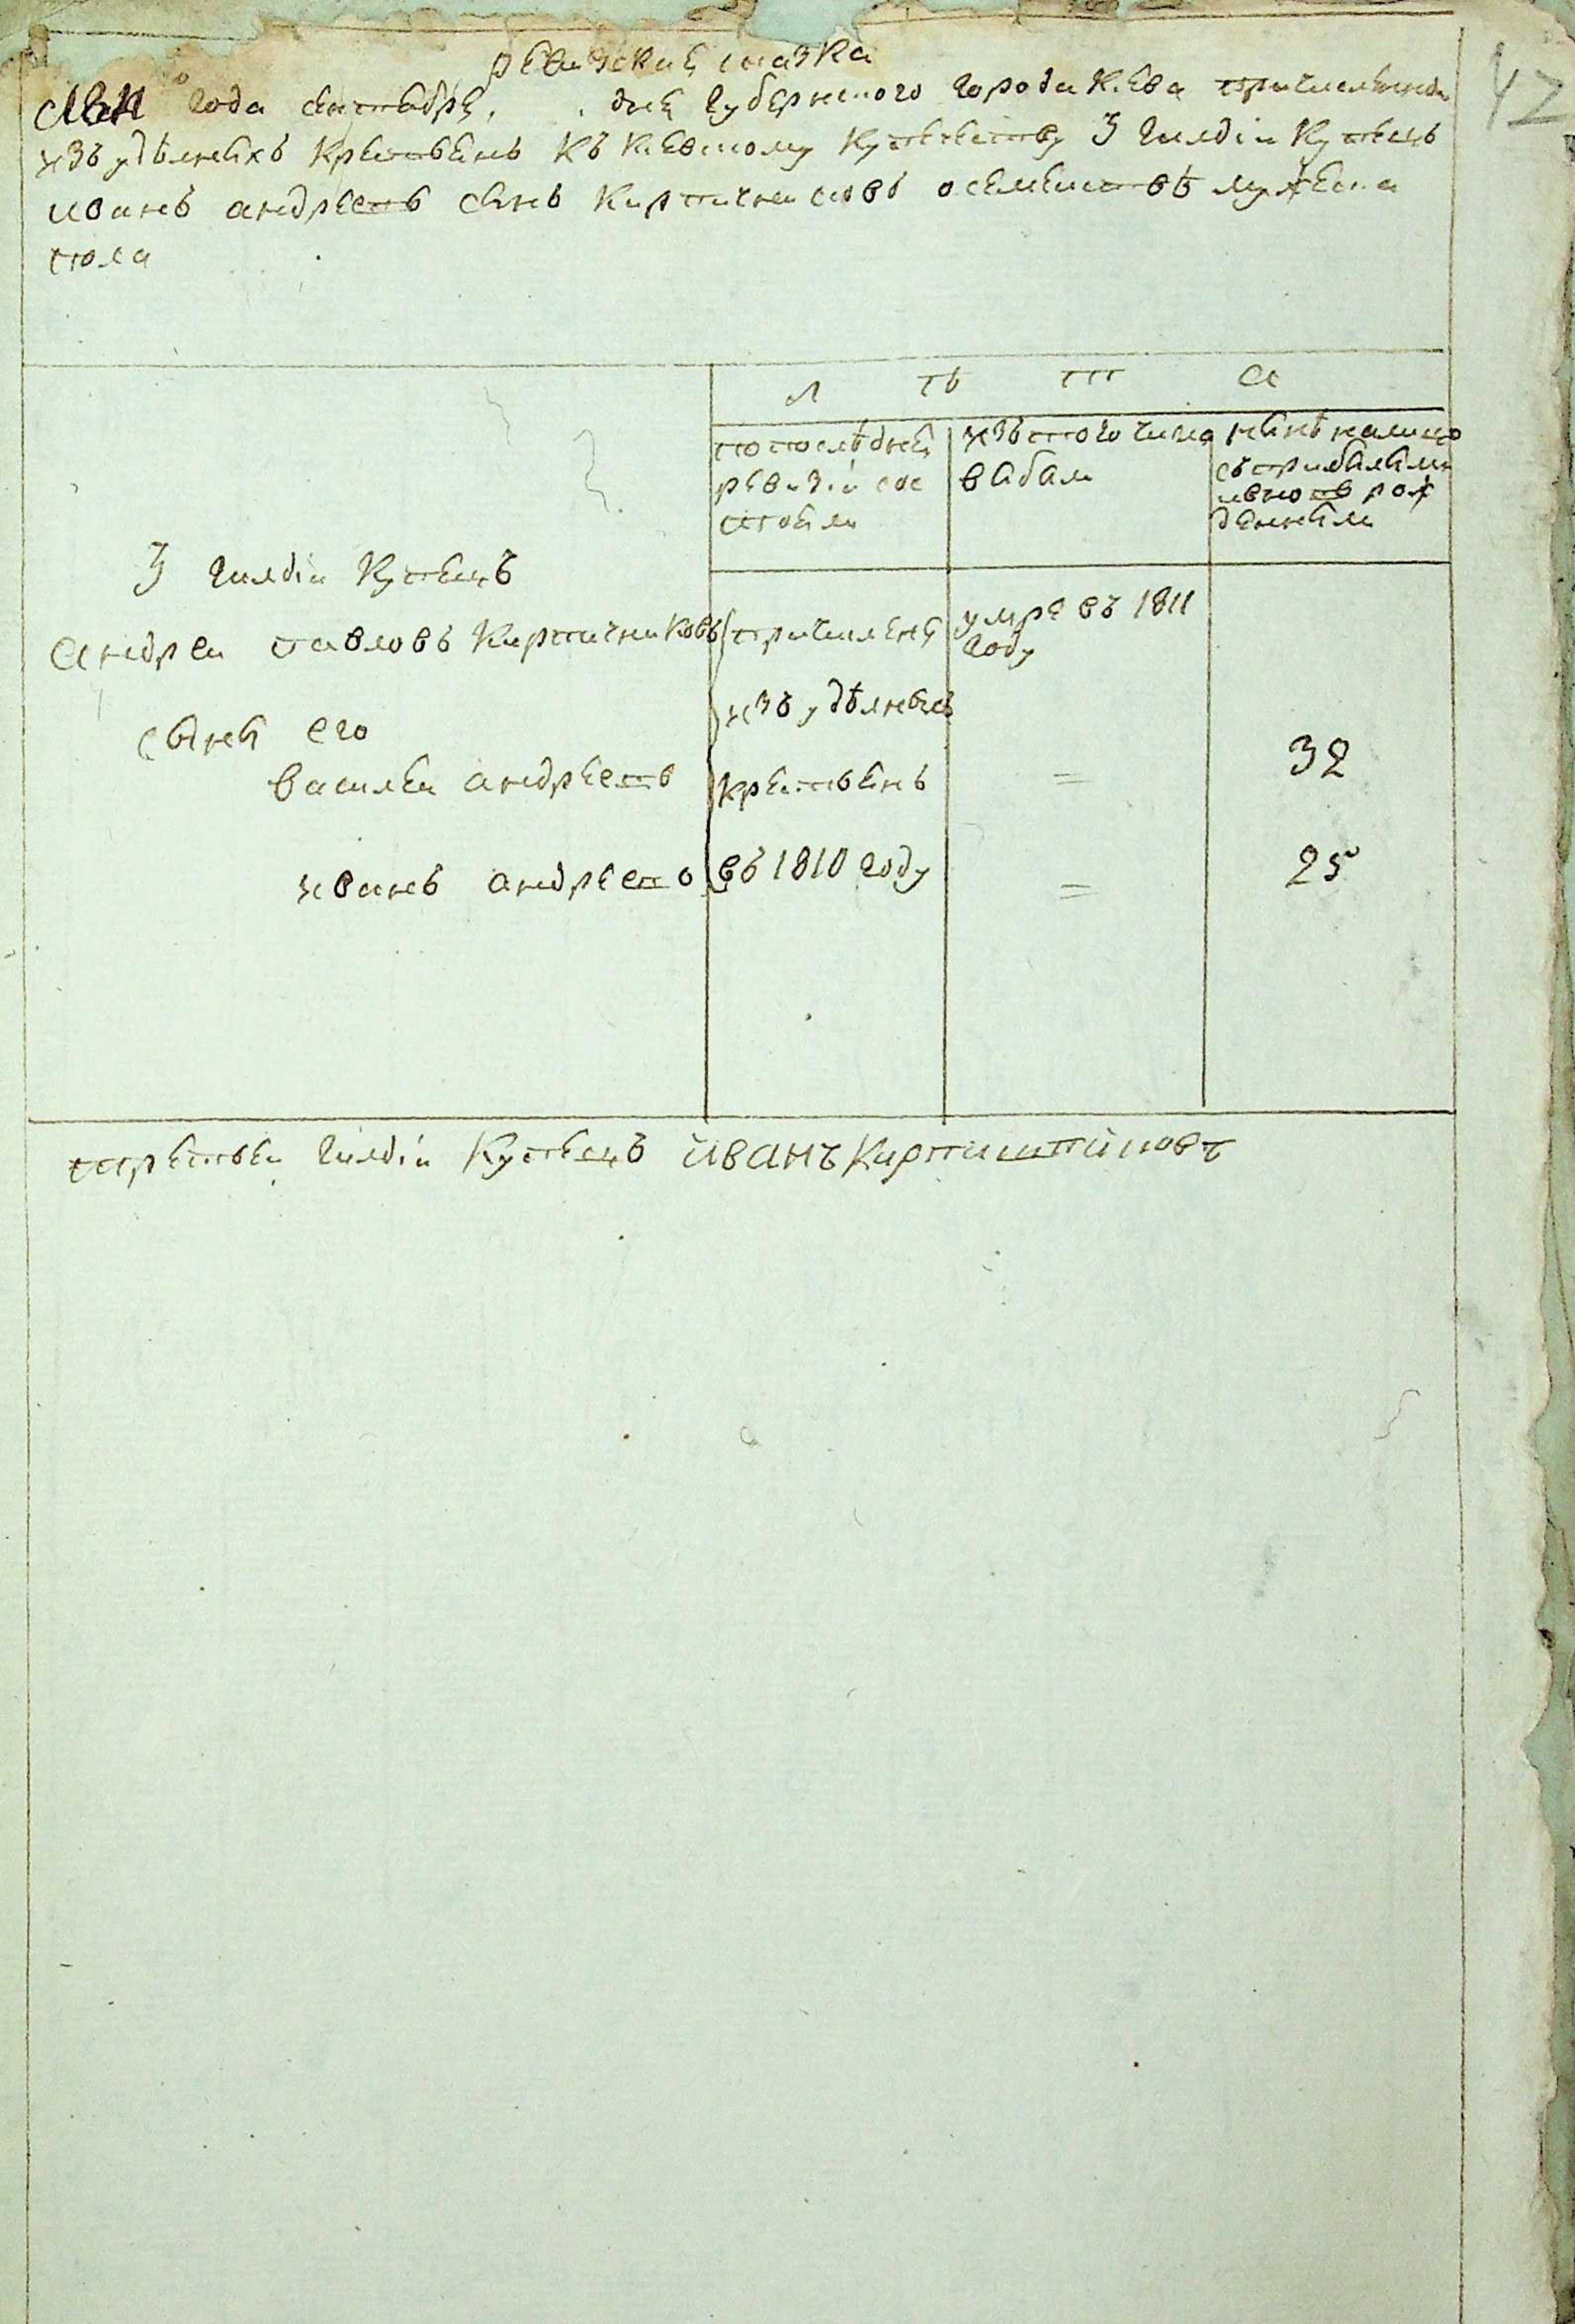 Ревизская сказка
года сентября дня губернского города Киева причисленной
изъ удѣлныхъ крестьянъ къ Киевскому купечеству 3 гилдіи купецъ
иванъ андреевъ сынъ Кирпичниковъ о семействѣ мужеска
пола
Л Ѣ Т А
попослѣдней ревизіи состояли
изътого числа выбыли
нынѣ налицо съ прибылыми и вновь рожденными
3 гилдіи Купецъ
Андреи павловъ Кирпичниковъ причислены умре въ 1811 году
сыны его изъ удѣлныхъ
василеи андреевъ крестьянъ = 32
иванъ андреев въ 1810 году = 25
третьеи гилдіи Купецъ иванъ Кирпишниковъ
42